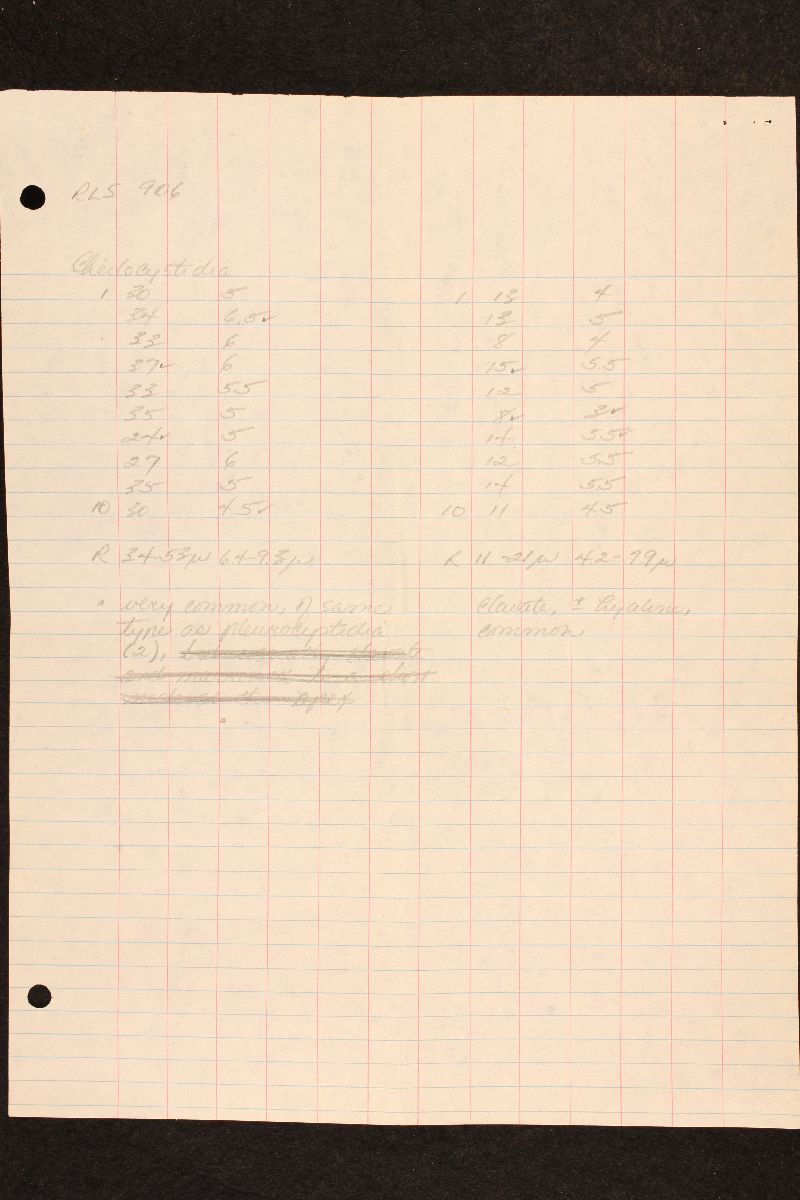 RLS 906
Cheilocystidia
1 30 5 1 13 4
34 6.5✓ 13 5
33 6 8 4
37✓ 6 15✓ 5.5
33 5.5 12 5
35 5 8✓ 3✓
24✓ 5 14 5.5✓
27 6 12 5.5
35 5 14 5.5
10 30 4.5✓ 10 11 4.5
R 34-53μ 6.4-9.3μ R 11-21μ 4.2-7.9μ
very common, of same clavate, ± hyaline,
type as pleurocystidia common
(2),
apex